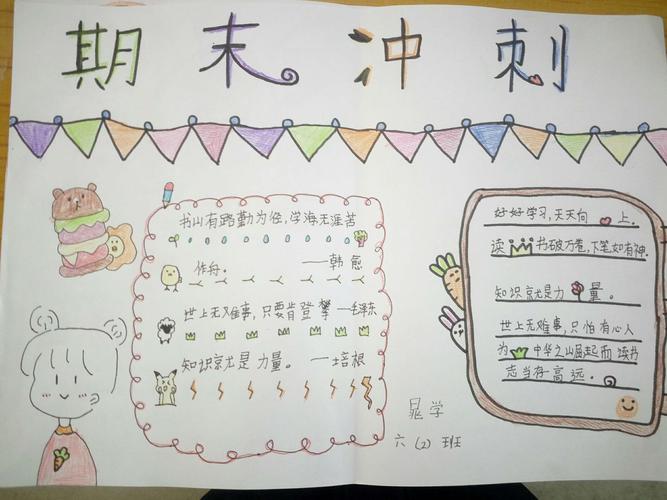 期末冲刺
书山有路勤为径,学海无涯苦
作舟。 ——韩愈
世上无难事,只要肯登攀 —毛泽东
知识就是力量。 —培根
晁学
六(2)班
好好学习,天天向上.
读书破万卷,下笔如有神.
知识就是力量.
世上无难事,只怕有心人
为中华之山崛起而读书
志当存高远.